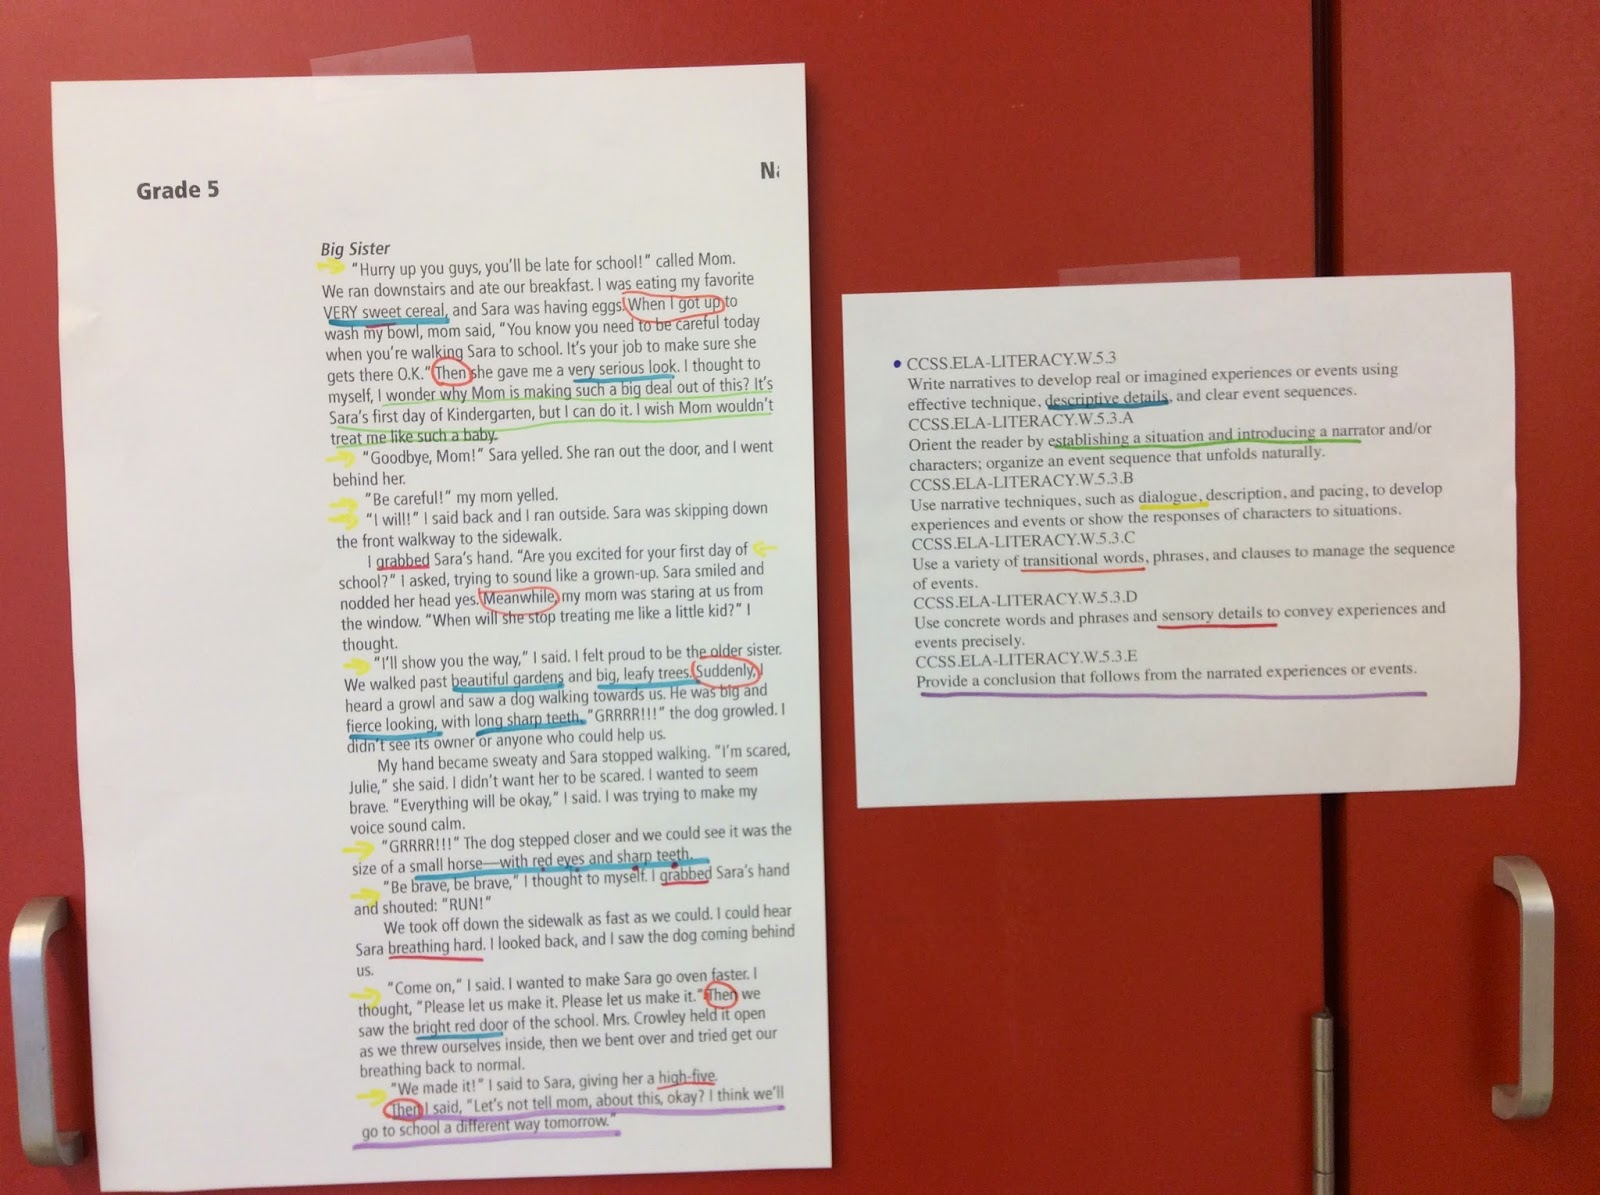 Grade 5
Big Sister
"Hurry up you guys, you'll be late for school!" called Mom.
We ran downstairs and ate our breakfast. I was eating my favorite
VERY sweet cereal, and Sara was having eggs. When I got up to
wash my bowl, mom said, "You know you need to be careful today
when you're walking Sara to school. It's your job to make sure she
gets there O.K." Then she gave me a very serious look. I thought to
myself, I wonder why Mom is making such a big deal out of this? It's
Sara's first day of Kindergarten, but I can do it. I wish Mom wouldn't
treat me like such a baby.
"Goodbye, Mom!" Sara yelled. She ran out the door, and I went
behind her.
"Be careful!" my mom yelled.
"I will!" I said back and I ran outside. Sara was skipping down
the front walkway to the sidewalk.
I grabbed Sara's hand. "Are you excited for your first day of
school?" I asked, trying to sound like a grown-up. Sara smiled and
nodded her head yes. Meanwhile, my mom was staring at us from
the window. "When will she stop treating me like a little kid?" I
thought.
"I'll show you the way," I said. I felt proud to be the older sister.
We walked past beautiful gardens and big, leafy trees. Suddenly, I
heard a growl and saw a dog walking towards us. He was big and
fierce looking, with long sharp teeth. "GRRRR!!!" the dog growled. I
didn't see its owner or anyone who could help us.
My hand became sweaty and Sara stopped walking. "I'm scared,
Julie," she said. I didn't want her to be scared. I wanted to seem
brave. "Everything will be okay," I said. I was trying to make my
voice sound calm.
"GRRRR!!!" The dog stepped closer and we could see it was the
size of a small horse—with red eyes and sharp teeth.
"Be brave, be brave," I thought to myself. I grabbed Sara's hand
and shouted: "RUN!"
We took off down the sidewalk as fast as we could. I could hear
Sara breathing hard. I looked back, and I saw the dog coming behind
us.
"Come on," I said. I wanted to make Sara go oven faster. I
thought, "Please let us make it. Please let us make it." Then we
saw the bright red door of the school. Mrs. Crowley held it open
as we threw ourselves inside, then we bent over and tried get our
breathing back to normal.
"We made it!" I said to Sara, giving her a high-five.
Then I said, "Let's not tell mom, about this, okay? I think we'll
go to school a different way tomorrow."
• CCSS.ELA-LITERACY.W.5.3
Write narratives to develop real or imagined experiences or events using
effective technique, descriptive details, and clear event sequences.
CCSS.ELA-LITERACY.W.5.3.A
Orient the reader by establishing a situation and introducing a narrator and/or
characters; organize an event sequence that unfolds naturally.
CCSS.ELA-LITERACY.W.5.3.B
Use narrative techniques, such as dialogue, description, and pacing, to develop
experiences and events or show the responses of characters to situations.
CCSS.ELA-LITERACY.W.5.3.C
Use a variety of transitional words, phrases, and clauses to manage the sequence
of events.
CCSS.ELA-LITERACY.W.5.3.D
Use concrete words and phrases and sensory details to convey experiences and
events precisely.
CCSS.ELA-LITERACY.W.5.3.E
Provide a conclusion that follows from the narrated experiences or events.